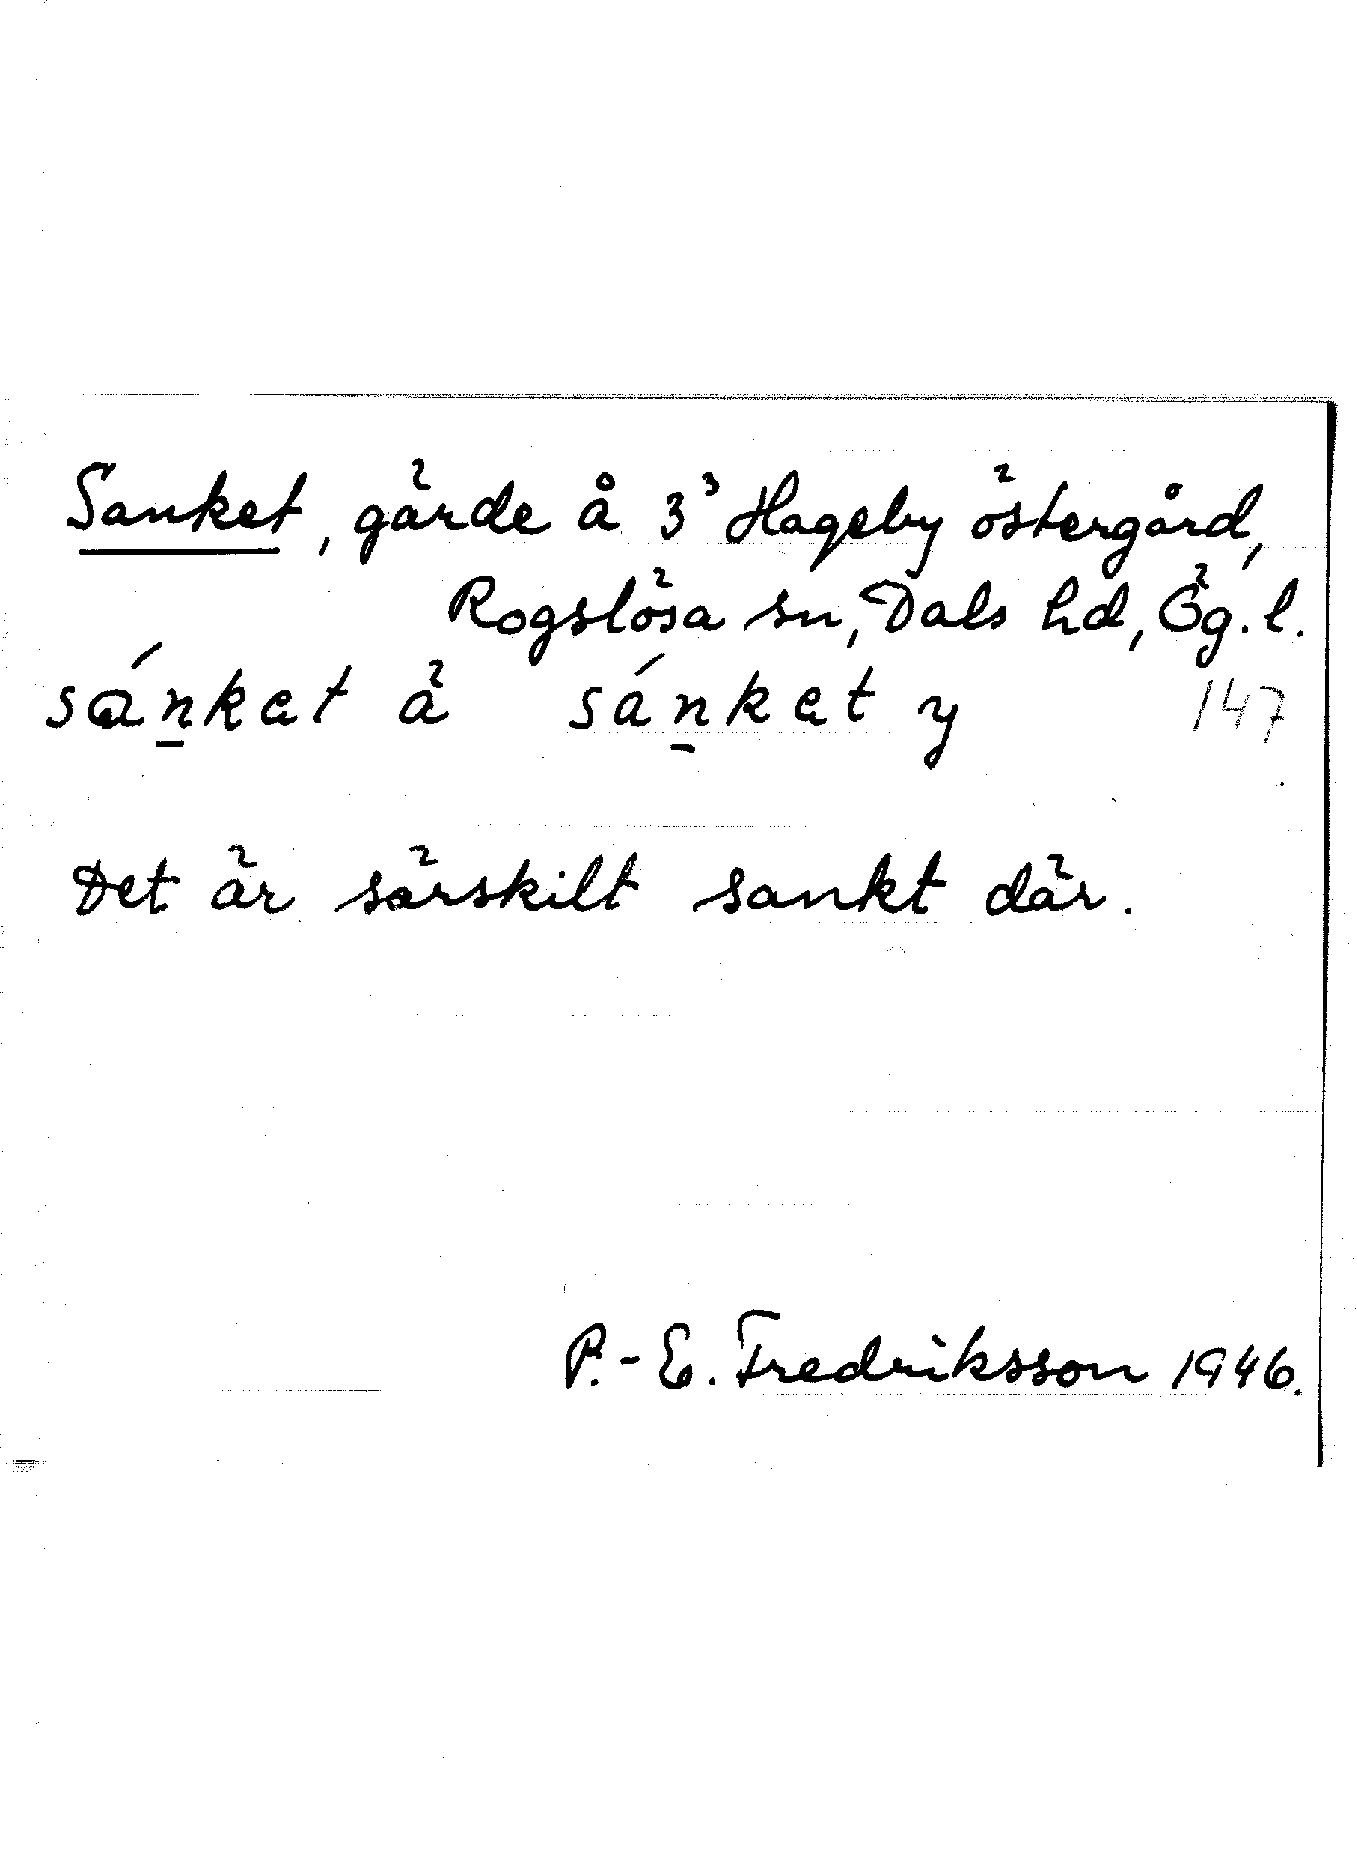 Sanket, gärde å 3³ Hageby östergård,
Rogslösa sn, Dals hd, Ög. l.
sánket ä sánket y 147
Det är särskilt sankt där.
P.-E. Fredriksson 1946.